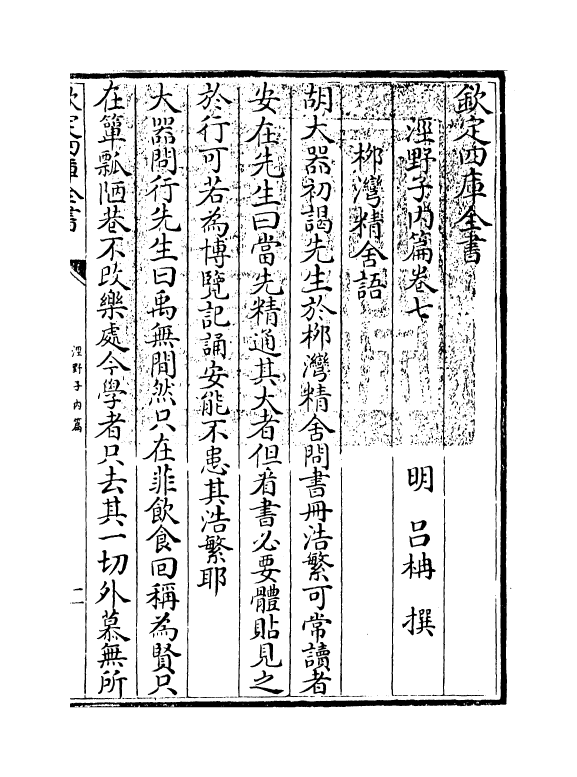 欽定四庫全書
涇野子内篇卷七
明 呂柟 撰
柳灣精舍語
胡大器初謁先生於柳灣精舍問書冊浩繁可常讀者
安在先生曰當先精通其大者但看書必要體貼見之
於行可若為博覽記誦安能不患其浩繁耶
大器問行先生曰禹無間然只在菲飲食回稱為賢只
在簞瓢陋巷不改樂處今學者只去其一切外慕無所
欽定四庫全書
涇野子内篇